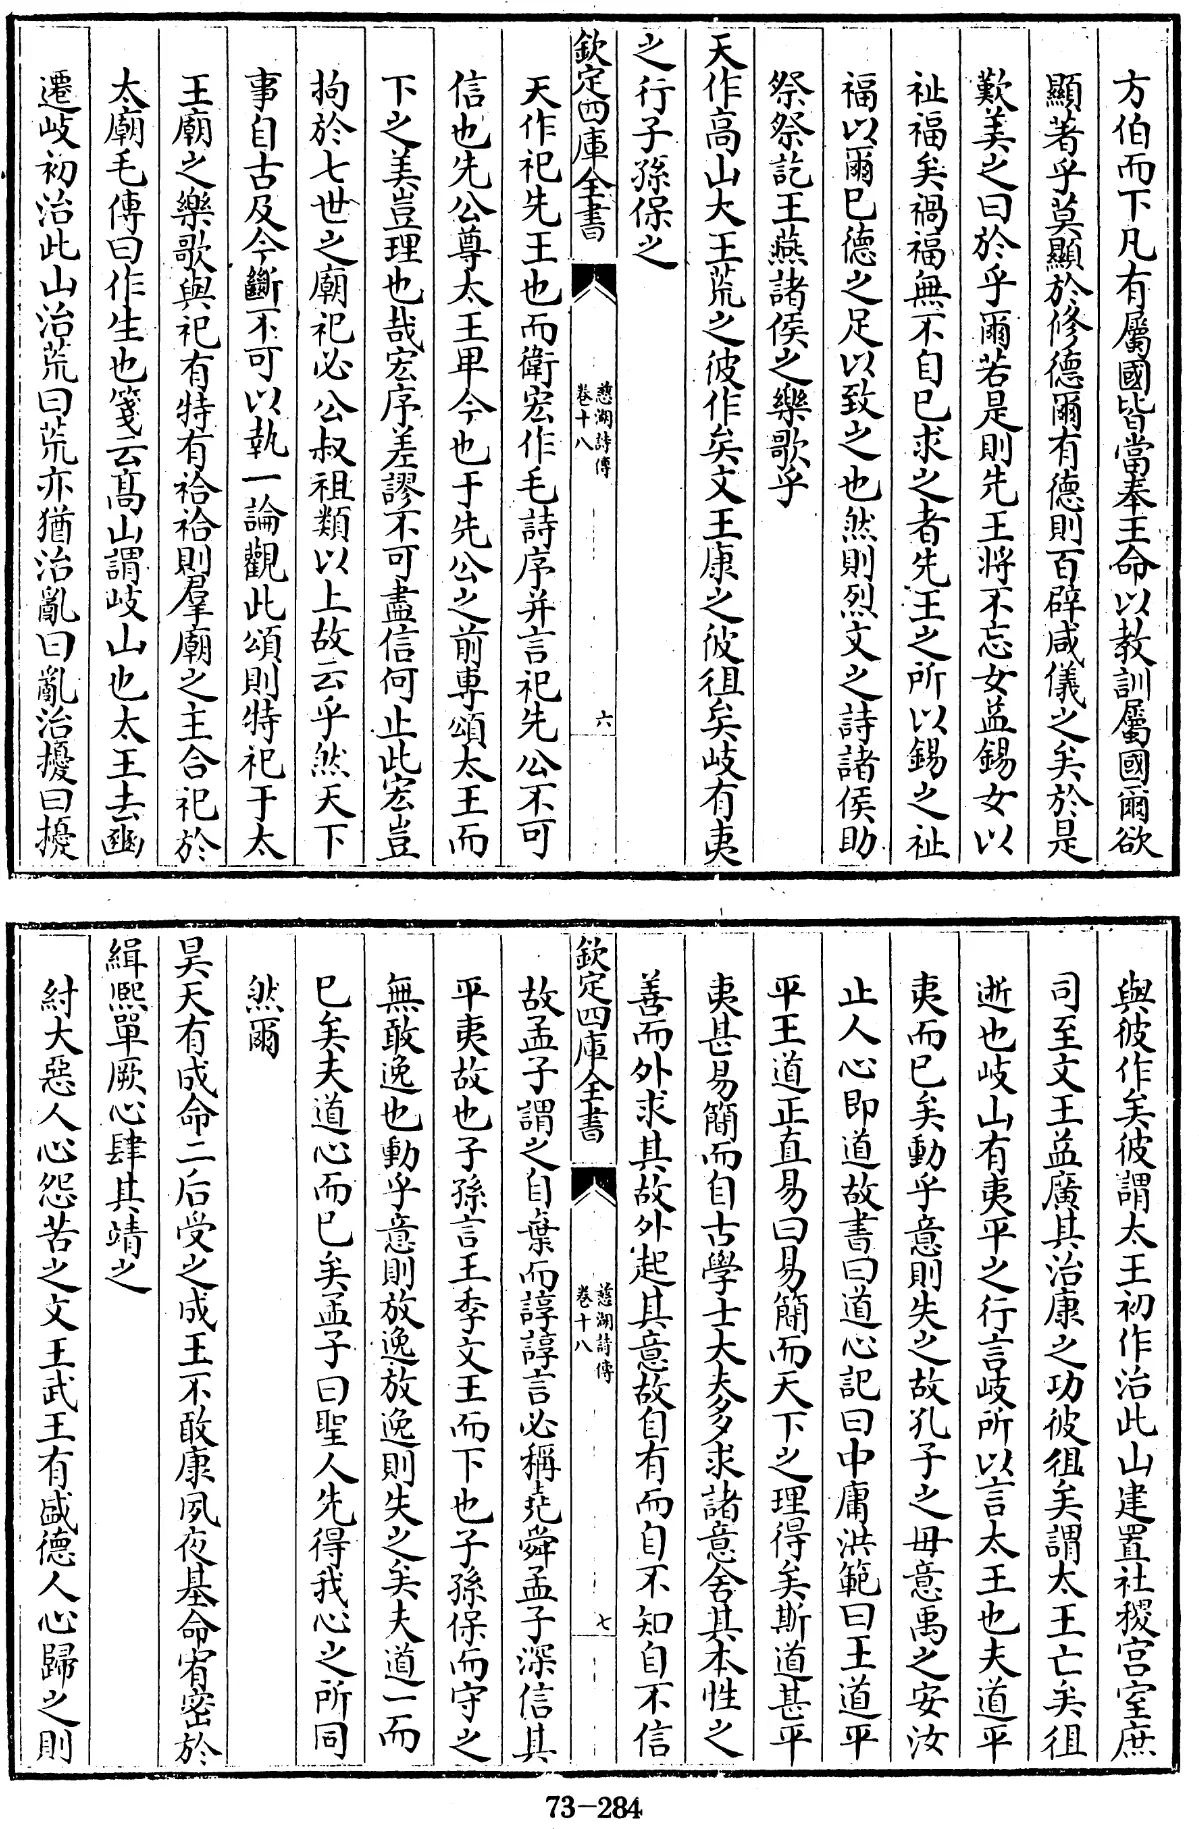 方伯而下凡有屬國皆當奉王命以教訓屬國爾欲
顯著乎莫顯於修德爾有德則百辟咸儀之矣於是
歎美之曰於乎爾若是則先王將不忘女益錫女以
祉福矣禍福無不自已求之者先王之所以錫之祉
福以爾已德之足以致之也然則烈文之詩諸侯助
祭祭訖王燕諸侯之樂歌乎
天作髙山大王荒之彼作矣文王康之彼徂矣岐有夷
之行子孫保之
欽定四庫全書
慈湖詩傳
卷十八
六
天作祀先王也而衛宏作毛詩序并言祀先公不可
信也先公尊太王卑今也于先公之前専頌太王而
下之美豈理也哉宏序差謬不可盡信何止此宏豈
拘於七世之廟祀必公叔祖類以上故云乎然天下
事自古及今斷不可以執一論觀此頌則特祀于太
王廟之樂歌與祀有特有祫祫則羣廟之主合祀於
太廟毛傳曰作生也箋云髙山謂岐山也太王去豳
遷岐初治此山治荒曰荒亦猶治亂曰亂治擾曰擾
與彼作矣彼謂太王初作治此山建置社稷宫室庶
司至文王益廣其治康之功彼徂矣謂太王亡矣徂
逝也岐山有夷平之行言岐所以言太王也夫道平
夷而已矣動乎意則失之故孔子之毋意禹之安汝
止人心即道故書曰道心記曰中庸洪範曰王道平
平王道正直易曰易簡而天下之理得矣斯道甚平
夷甚易簡而自古學士大夫多求諸意舍其本性之
善而外求其故外起其意故自有而自不知自不信
欽定四庫全書
慈湖詩傳
卷十八
七
故孟子謂之自棄而諄諄言必稱堯舜孟子深信其
平夷故也子孫言王季文王而下也子孫保而守之
無敢逸也動乎意則放逸放逸則失之矣夫道一而
已矣夫道心而已矣孟子曰聖人先得我心之所同
然爾
昊天有成命二后受之成王不敢康夙夜基命宥密於
緝熙單厥心肆其靖之
紂大惡人心怨苦之文王武王有盛德人心歸之則
73-284